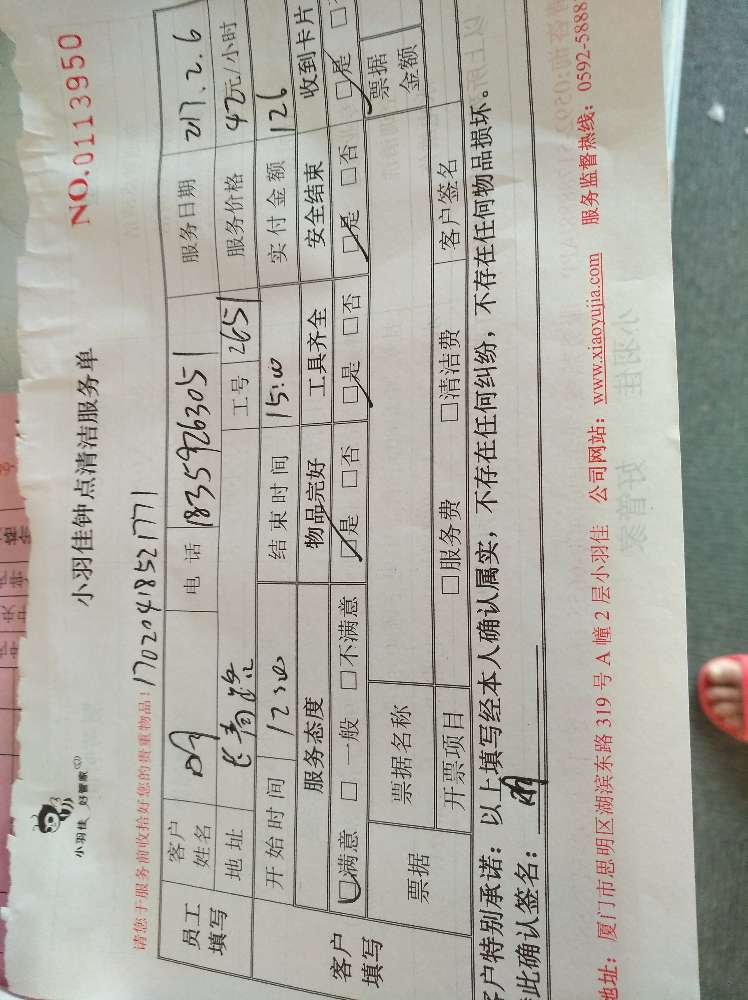 小羽佳 好管家
小羽佳钟点清洁服务单
NO.0113950
请您于服务前收拾好您的贵重物品！17020418521771
员工填写 客户姓名 电话 18359263051 服务日期 217.2.6
地址 长青路 工号 2651 服务价格 42元/小时
开始时间 12:00 结束时间 15:00 实付金额 126
客户填写 服务态度 物品完好 工具齐全 安全结束 收到卡片
□满意 □一般 □不满意 □是 □否 □是 □否 □是 □否 □是
票据 票据名称 票据金额
开票项目 □服务费 □清洁费 客户签名
客户特别承诺：以上填写经本人确认属实，不存在任何纠纷，不存在任何物品损坏。
此确认签名：
地址：厦门市思明区湖滨东路319号A幢2层小羽佳 公司网站：www.xiaoyujia.com 服务监督热线：0592-5888